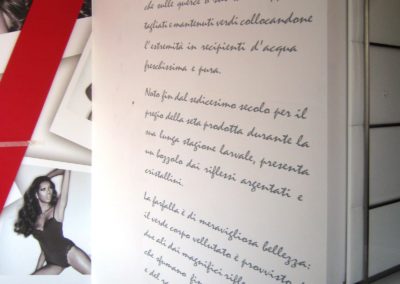 che sulle querce o su
tagliati e mantenuti verdi collocandone
l'estremità in recipienti d'acqua
freschissima e pura.
Noto fin dal sedicesimo secolo per il
pregio della seta prodotta durante la
sua lunga stagione larvale, presenta
un bozzolo dai riflessi argentati e
cristallini.
La farfalla è di meravigliosa bellezza:
il verde corpo vellutato è provvisto d
due ali dai magnifici rifle
che sfumano fin
e del